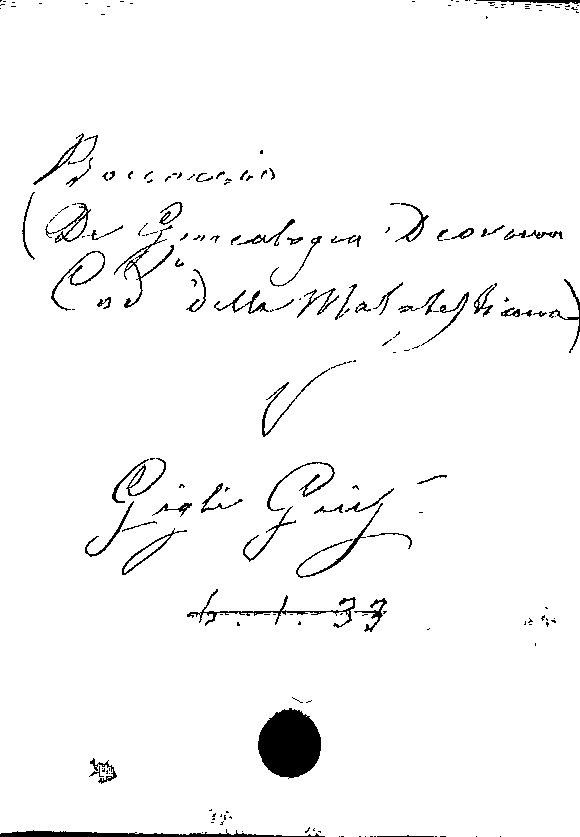 Boccaccio
(De Genealogia Deorum
Cod. della Malatestiana)
V
Gigli Gius.
6. 1. 33